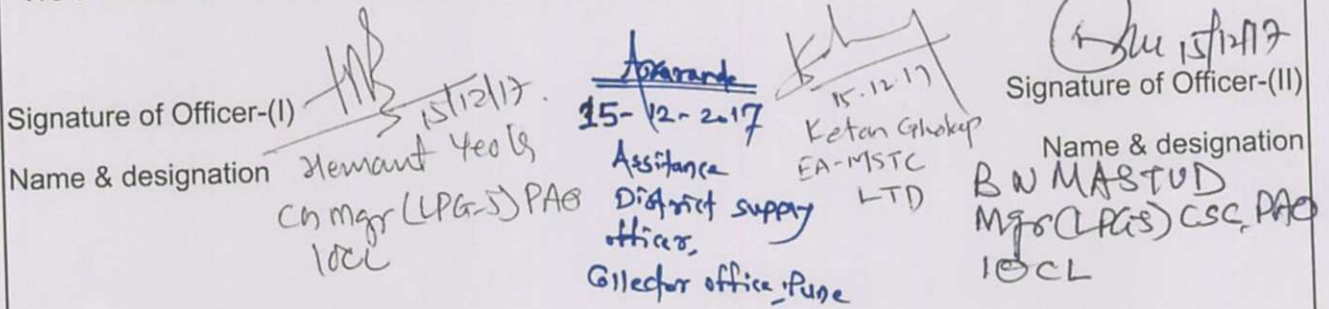 Signature of Officer-(I) 15/12/17.
Name & designation Hemant Yeole
Ch Mgr (LPG-S) PAO
IOCL
15-12-2017
Assitance
District supply
officer,
Collector office, Pune
15.12.17
Ketan Gholap
EA-MSTC
LTD
15/12/17
Signature of Officer-(II)
Name & designation
B N MASTUD
Mgr (LPGS) CSC, PAO
IOCL